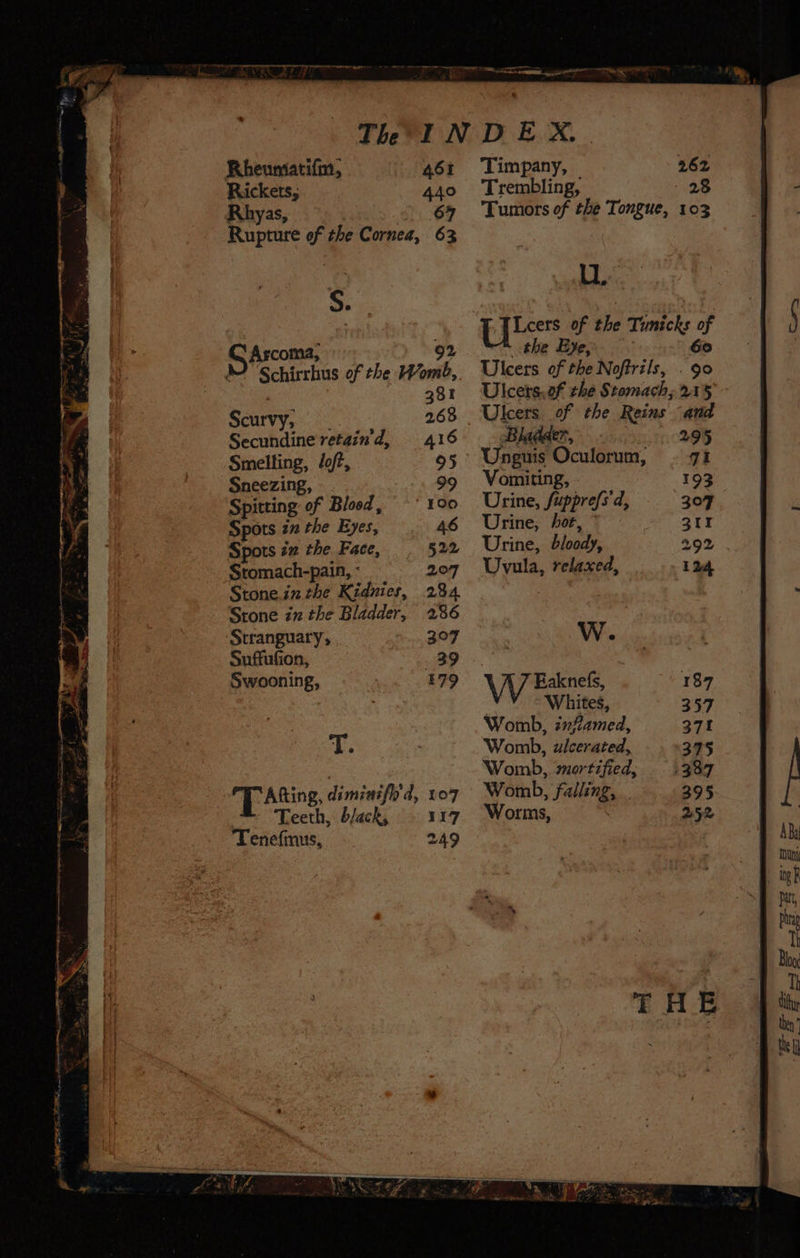 The INDEX.
Rheumatiſm, 461
Rickets, 440
Rhyas, 67
Rupture of the Cornea, 63
S.
SArcoma, 92
Schirrhus of the Womb,
381
Scurvy, 268
Secundine retain'd, 416
Smelling, loſt, 95
Sneezing, 99
Spitting of Blood, 100
Spots in the Eyes, 46
Spots in the Face, 522
Stomach-pain, 207
Stone in the Kidnies, 284
Stone in the Bladder, 286
Stranguary, 307
Suffuſion, 39
Swooning, 179
T.
TAſting, diminiſh'd, 107
Teeth, black, 117
Teneſmus, 249
Timpany, 262
Trembling, 28
Tumors of the Tongue, 103
U.
ULcers of the Tunicks of
the Eye, 60
Ulcers of the Noſtrils, 90
Ulcers of the Stomach, 215
Ulcers of the Reins and
Bladder, 295
Unguis Oculorum, 71
Vomiting, 193
Urine, ſuppreſs'd, 307
Urine, hot, 311
Urine, bloody, 292
Uvula, relaxed, 124
W.
WEakneſs, 187
Whites, 357
Womb, inflamed, 371
Womb, ulcerated, 375
Womb, mortified, 387
Womb, falling, 395
Worms, 252
THE